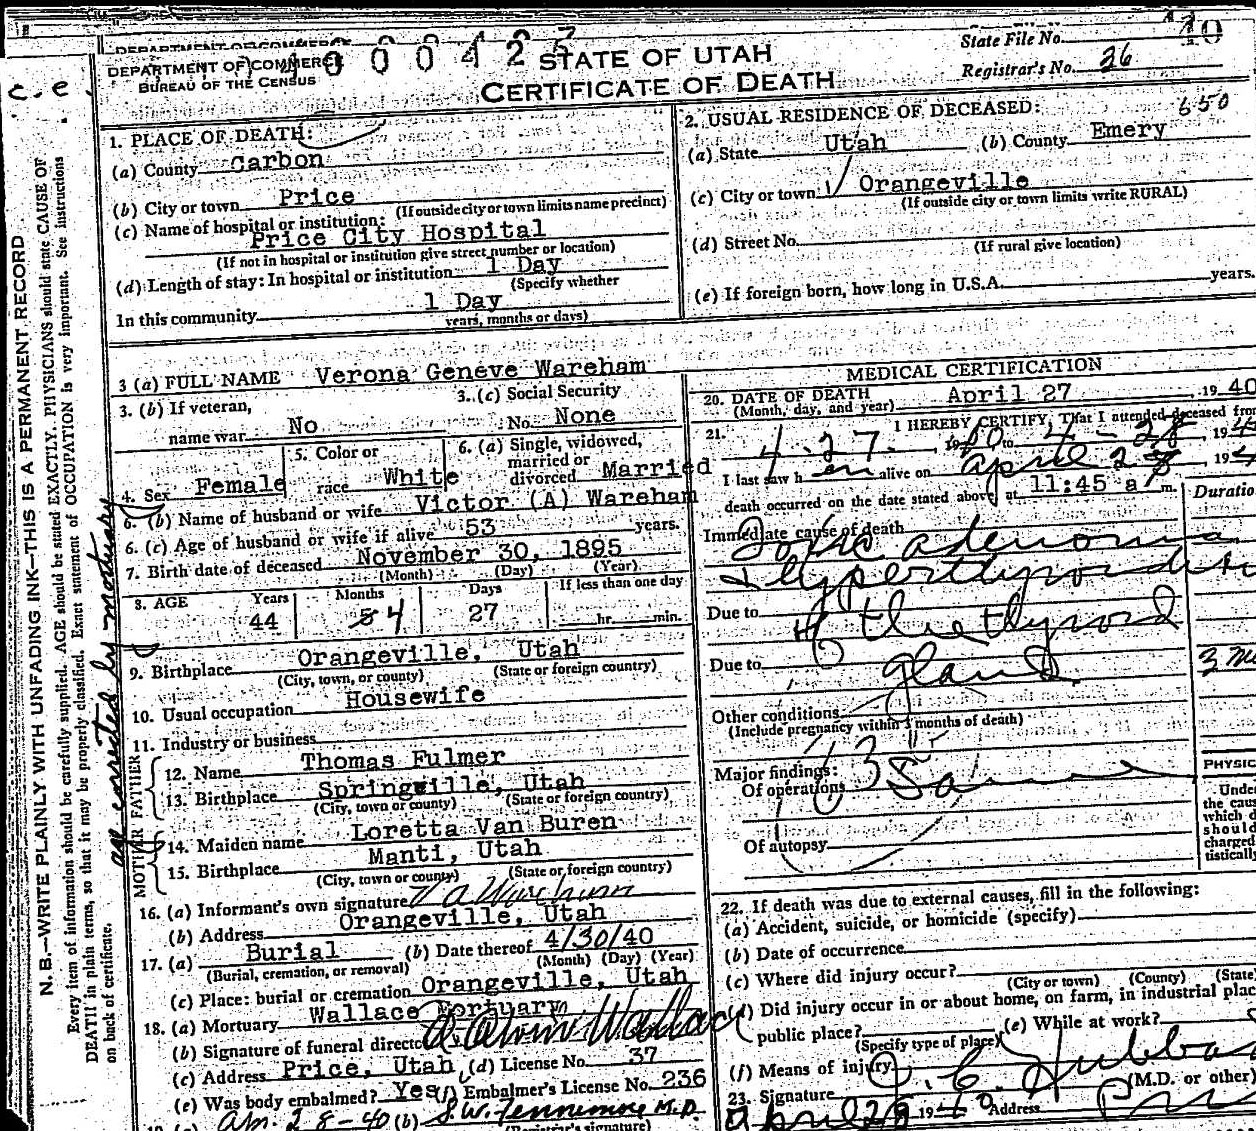 DEPARTMENT OF COMMERCE
BUREAU OF THE CENSUS
STATE OF UTAH
CERTIFICATE OF DEATH
State File No.
Registrar's No. 26
c. e.
N. B.—WRITE PLAINLY WITH UNFADING INK—THIS IS A PERMANENT RECORD
Every item of information should be carefully supplied. AGE should be stated EXACTLY. PHYSICIANS should state CAUSE OF
DEATH in plain terms, so that it may be properly classified. Exact statement of OCCUPATION is very important. See instructions
on back of certificate.
age corrected by mortuary
1. PLACE OF DEATH:
(a) County Carbon
(b) City or town Price
(If outside city or town limits name precinct)
(c) Name of hospital or institution:
Price City Hospital
(If not in hospital or institution give street number or location)
(d) Length of stay: In hospital or institution 1 Day
(Specify whether
In this community 1 Day
years, months or days)
2. USUAL RESIDENCE OF DECEASED: 650
(a) State Utah (b) County Emery
(c) City or town Orangeville
(If outside city or town limits write RURAL)
(d) Street No.
(If rural give location)
(e) If foreign born, how long in U.S.A. years.
3 (a) FULL NAME Verona Geneve Wareham
3. (b) If veteran, name war No
3. (c) Social Security No. None
4. Sex Female
5. Color or race White
6. (a) Single, widowed, married or divorced Married
6. (b) Name of husband or wife Victor (A) Wareham
6. (c) Age of husband or wife if alive 53 years.
7. Birth date of deceased November 30, 1895
(Month) (Day) (Year)
8. AGE Years Months Days If less than one day
44 5 4 27 hr. min.
9. Birthplace Orangeville, Utah
(City, town, or county) (State or foreign country)
10. Usual occupation Housewife
11. Industry or business
FATHER
12. Name Thomas Fulmer
13. Birthplace Springville, Utah
(City, town or county) (State or foreign country)
MOTHER
14. Maiden name Loretta Van Buren
15. Birthplace Manti, Utah
(City, town or county) (State or foreign country)
16. (a) Informant's own signature V A Wareham
(b) Address Orangeville, Utah
17. (a) Burial (b) Date thereof 4/30/40
(Burial, cremation, or removal) (Month) (Day) (Year)
(c) Place: burial or cremation Orangeville, Utah
18. (a) Mortuary Wallace Mortuary
(b) Signature of funeral director Wallace
(c) Address Price, Utah (d) License No. 37
(e) Was body embalmed? Yes (f) Embalmer's License No. 236
Apr. 28-40 (b) S.W. Fennemore M.D.
(Registrar's signature)
MEDICAL CERTIFICATION
20. DATE OF DEATH April 27 1940
(Month, day, and year)
21. I HEREBY CERTIFY, That I attended deceased from
4-27- 1940 to 4-28 19
I last saw h er alive on April 27, 19
death occurred on the date stated above, at 11:45 a m.
Duratio
Immediate cause of death
Toxic adenoma
& Hyperthyroid
Due to of the thyroid
Due to gland.
3
Other conditions
(Include pregnancy within 3 months of death)
Major findings:
Of operations Same
Of autopsy
PHYSIC
Unde
the caus
which d
should
charged
tistically
22. If death was due to external causes, fill in the following:
(a) Accident, suicide, or homicide (specify)
(b) Date of occurrence
(c) Where did injury occur?
(City or town) (County) (State)
(d) Did injury occur in or about home, on farm, in industrial plac
public place? (e) While at work?
(Specify type of place)
(f) Means of injury
23. Signature J. C. Hubba
(M.D. or other)
April 28 1940 Address